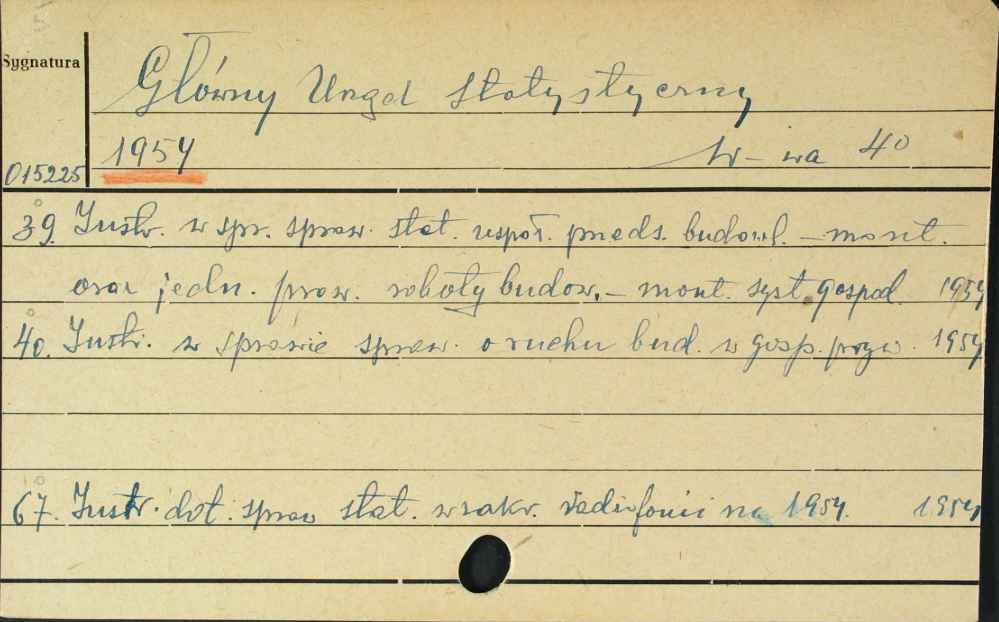 Sygnatura
Główny Urząd Statystyczny
1954 W-wa 40
015225
39. Instr. w spr. spraw. stat. uspoł. przeds. budowl. - mont.
oraz jedn. prow. roboty budow. - mont. syst. gospod. 1954
40. Instr. w sprawie spraw. o ruchu bud. w gosp. pryw. 1954
67. Instr. dot. spraw stat. w zakr. radiofonii na 1954. 1954